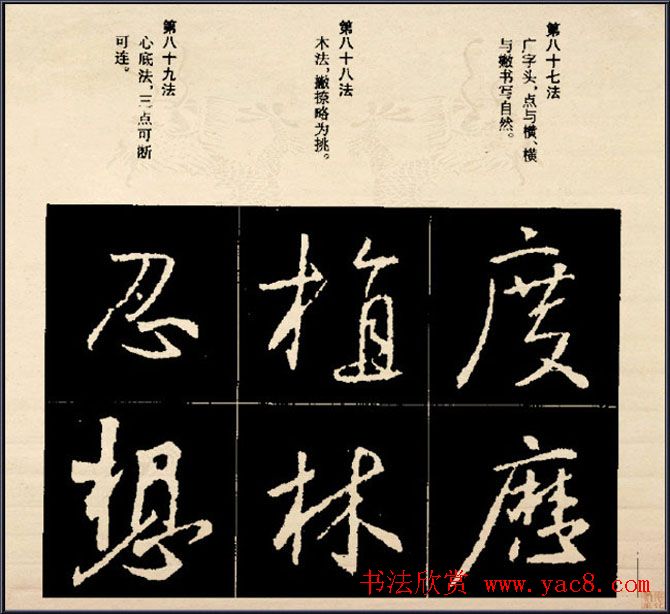 第八十七法
广字头，点与横、横
与撇书写自然。
第八十八法
木法，撇捺略为挑。
第八十九法
心底法，三点可断
可连。
度
植
忍
林
想
书法欣赏 www.yac8.com